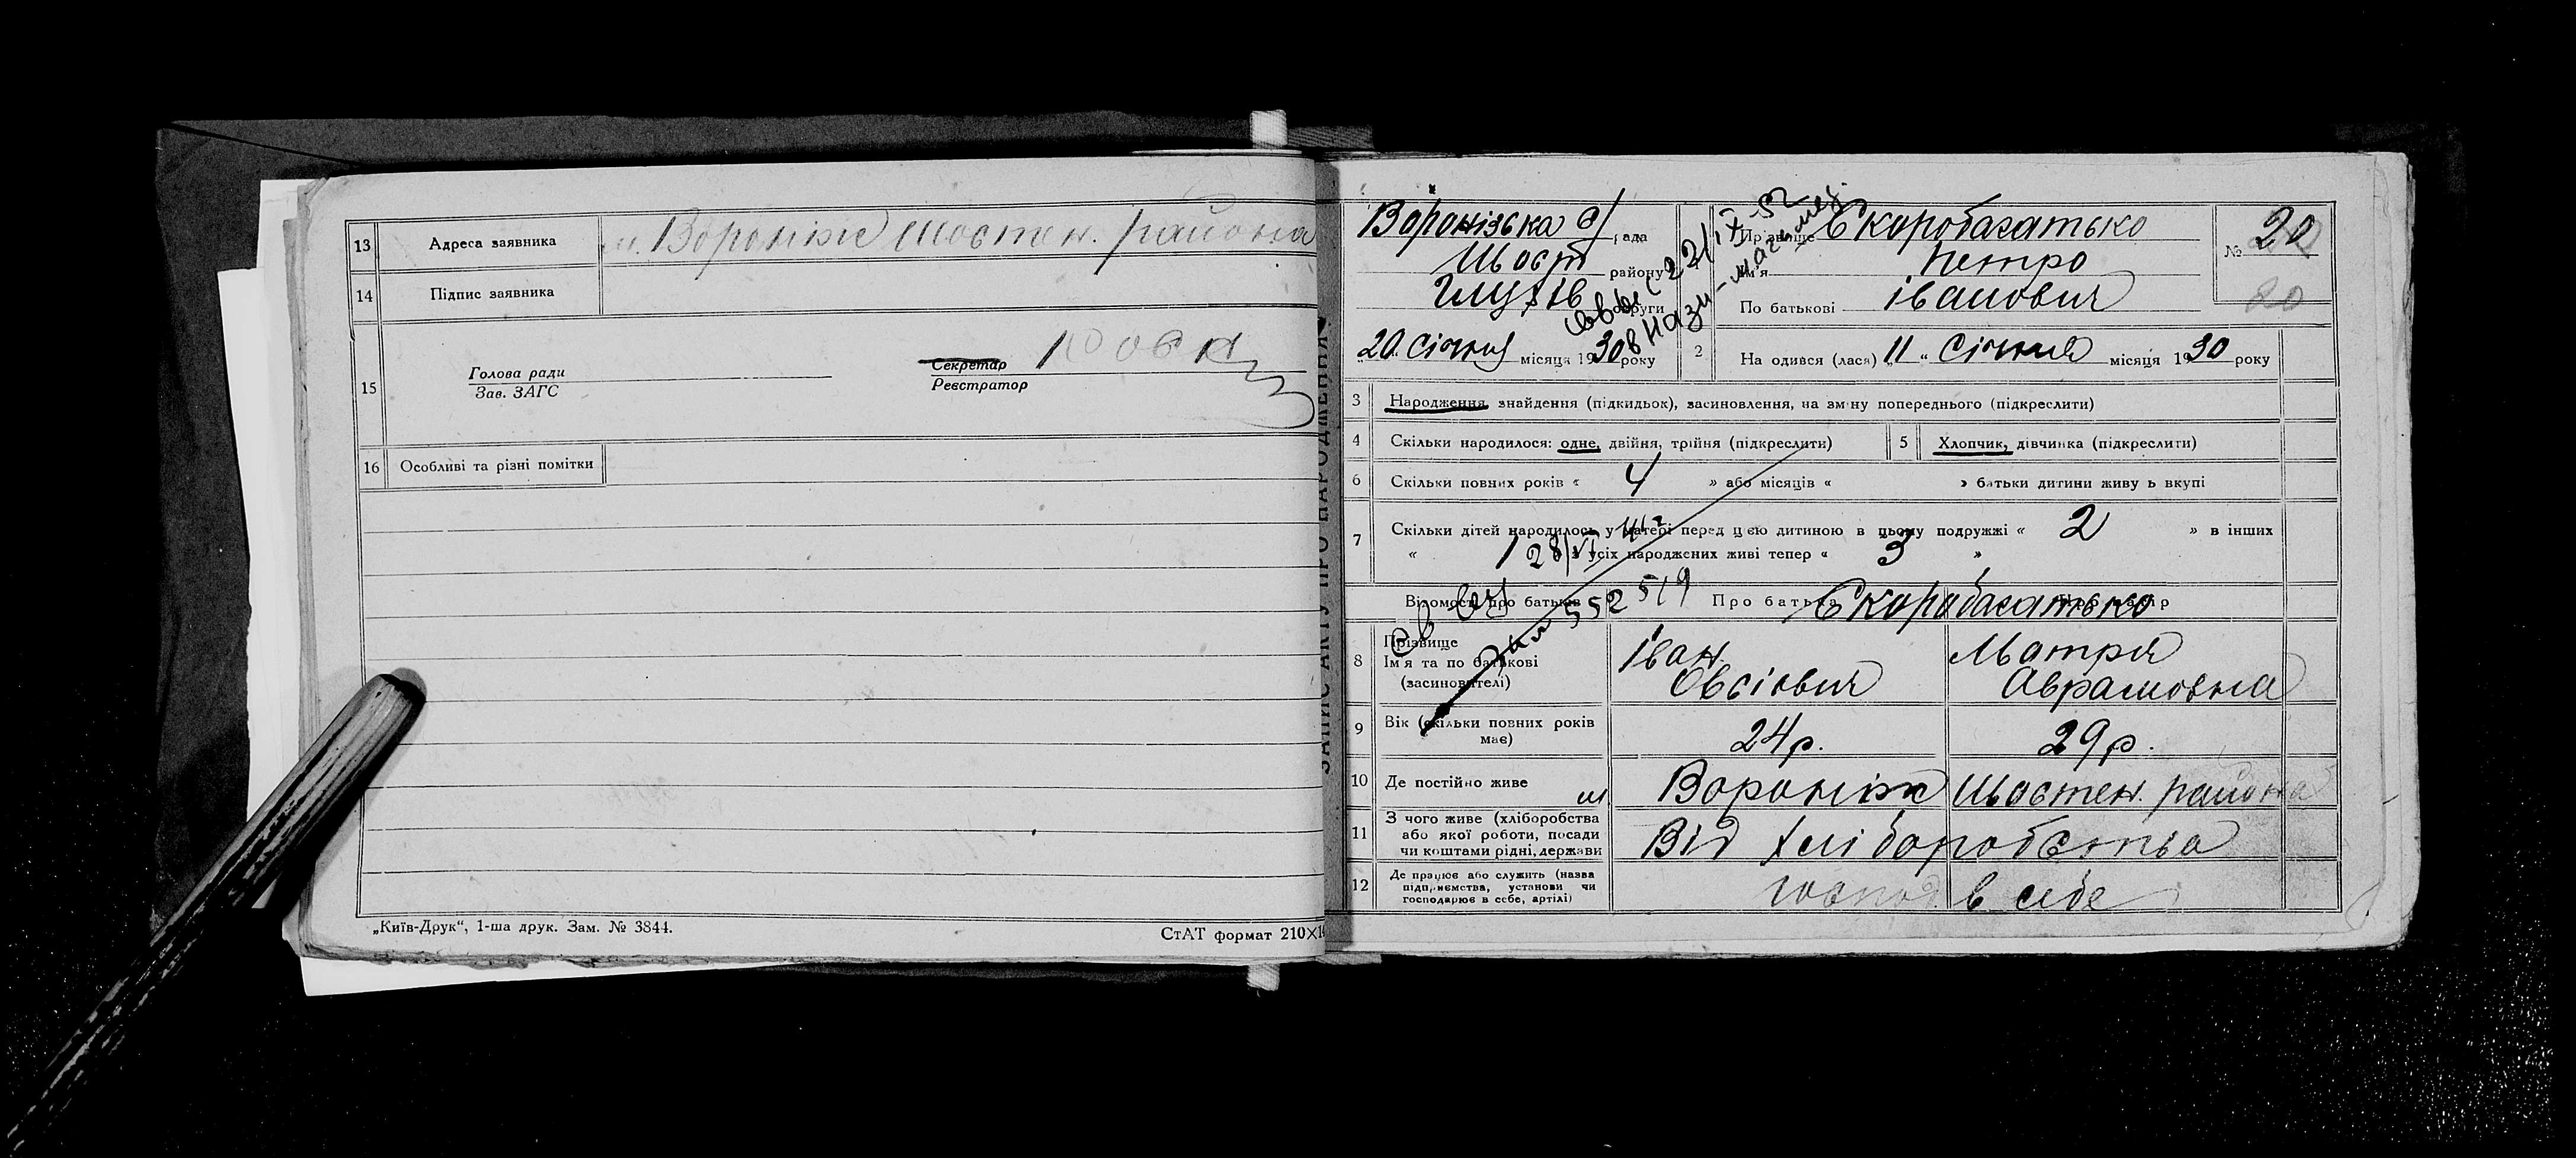 13 Адреса заявника м. Вороніж Шостен. района
14 Підпис заявника
15 Голова ради
Зав. ЗАГС
Секретар
Реєстратор
16 Особливі та різні помітки
„Київ-Друк“, 1-ша друк. Зам. № 3844.
СтАТ формат 210×1
ЗАПИС АКТУ ПРО НАРОДЖЕННЯ
Воронізька с/ рада
Шост району
Глухів округи
20 січня місяця 1930 року
Прізвище Скоробагатько
Ім'я Петро
По батькові Іванович
№ 20
20
2 На одився (лася) „11“ Січня місяця 1930 року
3 Народження, знайдення (підкидьок), засиновлення, на зміну попереднього (підкреслити)
4 Скільки народилося: одне, двійня, трійня (підкреслити)
5 Хлопчик, дівчинка (підкреслити)
6 Скільки повних років « 4 » або місяців « » батьки дитини живу ь вкупі
7 Скільки дітей народилось у матері перед цією дитиною в цьому подружжі « 2 » в інших
« 1 усіх народжених живі тепер « 3 »
28/VI
552519
Відомості про батьків Про батька Скоробагатько
8 Прізвище
Ім'я та по батькові
(засиновителі)
Іван Мотря
Овсієвич Аврамовна
9 Вік (скільки повних років має) 24 р. 29 р.
10 Де постійно живе м Вороніж Шостен. района
11 З чого живе (хліборобства
або якої роботи, посади
чи коштами рідні, держави
Від хліборобства
12 Де працює або служить (назва
підприємства, установи чи
господарює в себе, артілі)
господ. в себе